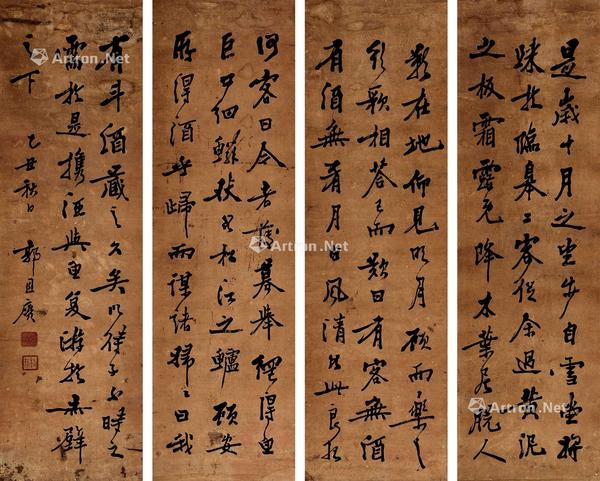 是歲十月之望步自雪堂將
歸於臨皋二客從余過黃泥
之坂霜露既降木葉盡脫人
影在地仰見明月顧而樂之
行歌相答已而歎曰有客無酒
有酒無肴月白風清如此良夜
何客曰今者薄暮舉網得魚
巨口細鱗狀如松江之鱸顧安
所得酒乎歸而謀諸婦婦曰我
有斗酒藏之久矣以待子不時之
需於是攜酒與魚復游於赤壁
之下
丑秋日 郭
Artron.Net
Artron.Net
Artron.Net
Artron.Net
Artron.Net
Artron.Net